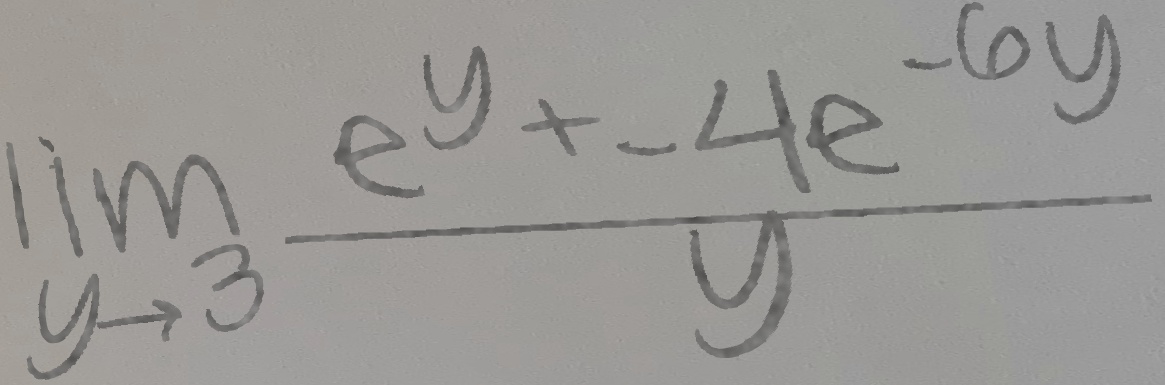 \lim_{y \to 3} \frac{e^{y} + -4e^{-6y}}{y}